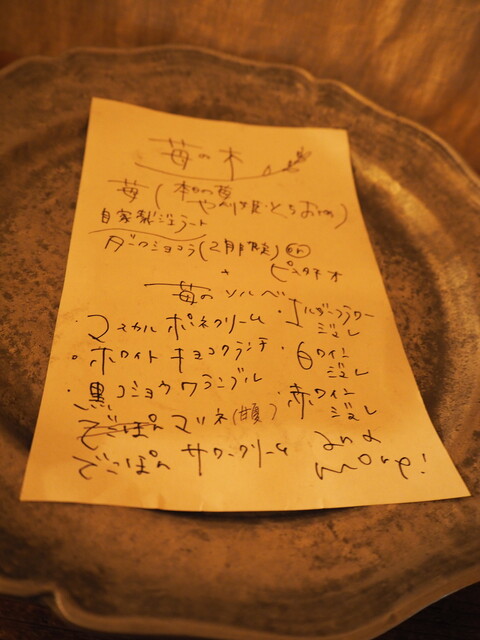 苺の木
苺(本日の苺
やよいひめ・とちおとめ)
自家製ジェラート
ダークショコラ(2月限定) or
+ ピスタチオ
苺のソルベ
・マスカルポーネクリーム ・エルダーフラワー
ジュレ
・ホワイトチョコクランチ ・白ワイン
ジュレ
・黒コショウクランブル ・赤ワイン
ジュレ
マリネ(甘夏)
でこぽん サワークリーム and
more!